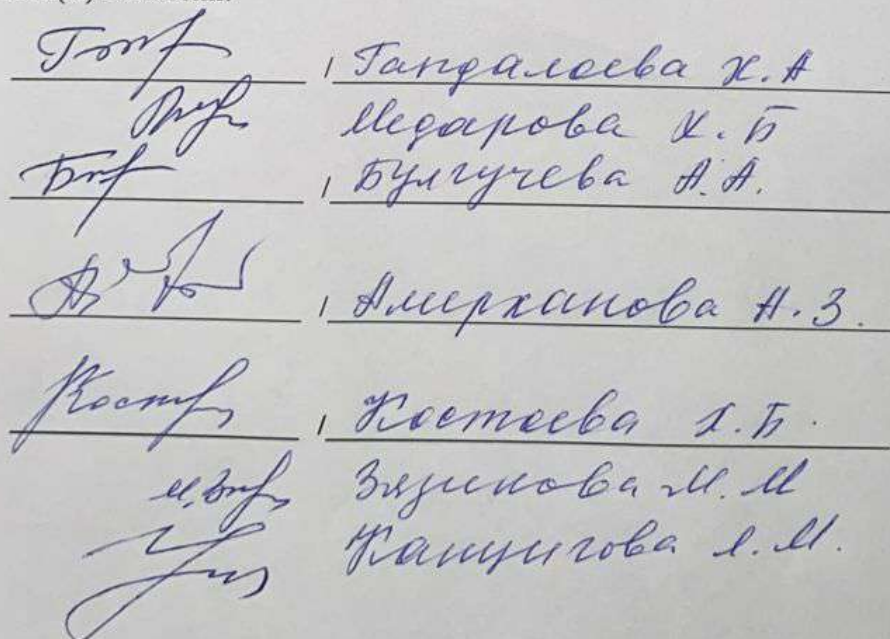 Гандалоева Х.А
Медарова Х.Б
Булгучева А.А.
Амерханова А.З.
Костоева Х.Б.
Зязикова М.М
Канцигова Л.М.